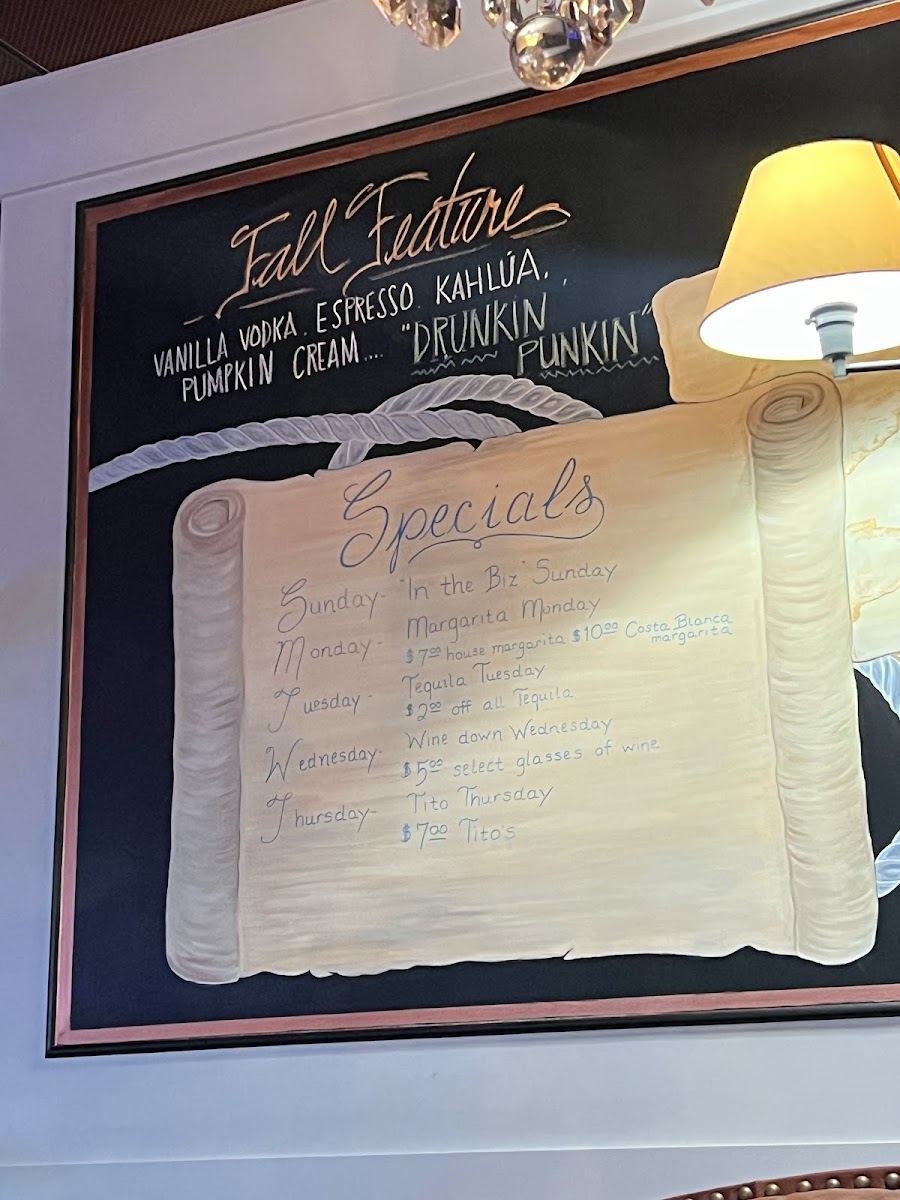 Fall Feature
VANILLA VODKA. ESPRESSO. KAHLÚA,
PUMPKIN CREAM.... "DRUNKIN
PUNKIN"
Specials
Sunday- "In the Biz" Sunday
Monday- Margarita Monday
$7.00 house margarita $10.00 Costa Blanca
margarita
Tuesday- Tequila Tuesday
$2.00 off all Tequila
Wednesday- Wine down Wednesday
$5.00 select glasses of wine
Thursday- Tito Thursday
$7.00 Tito's